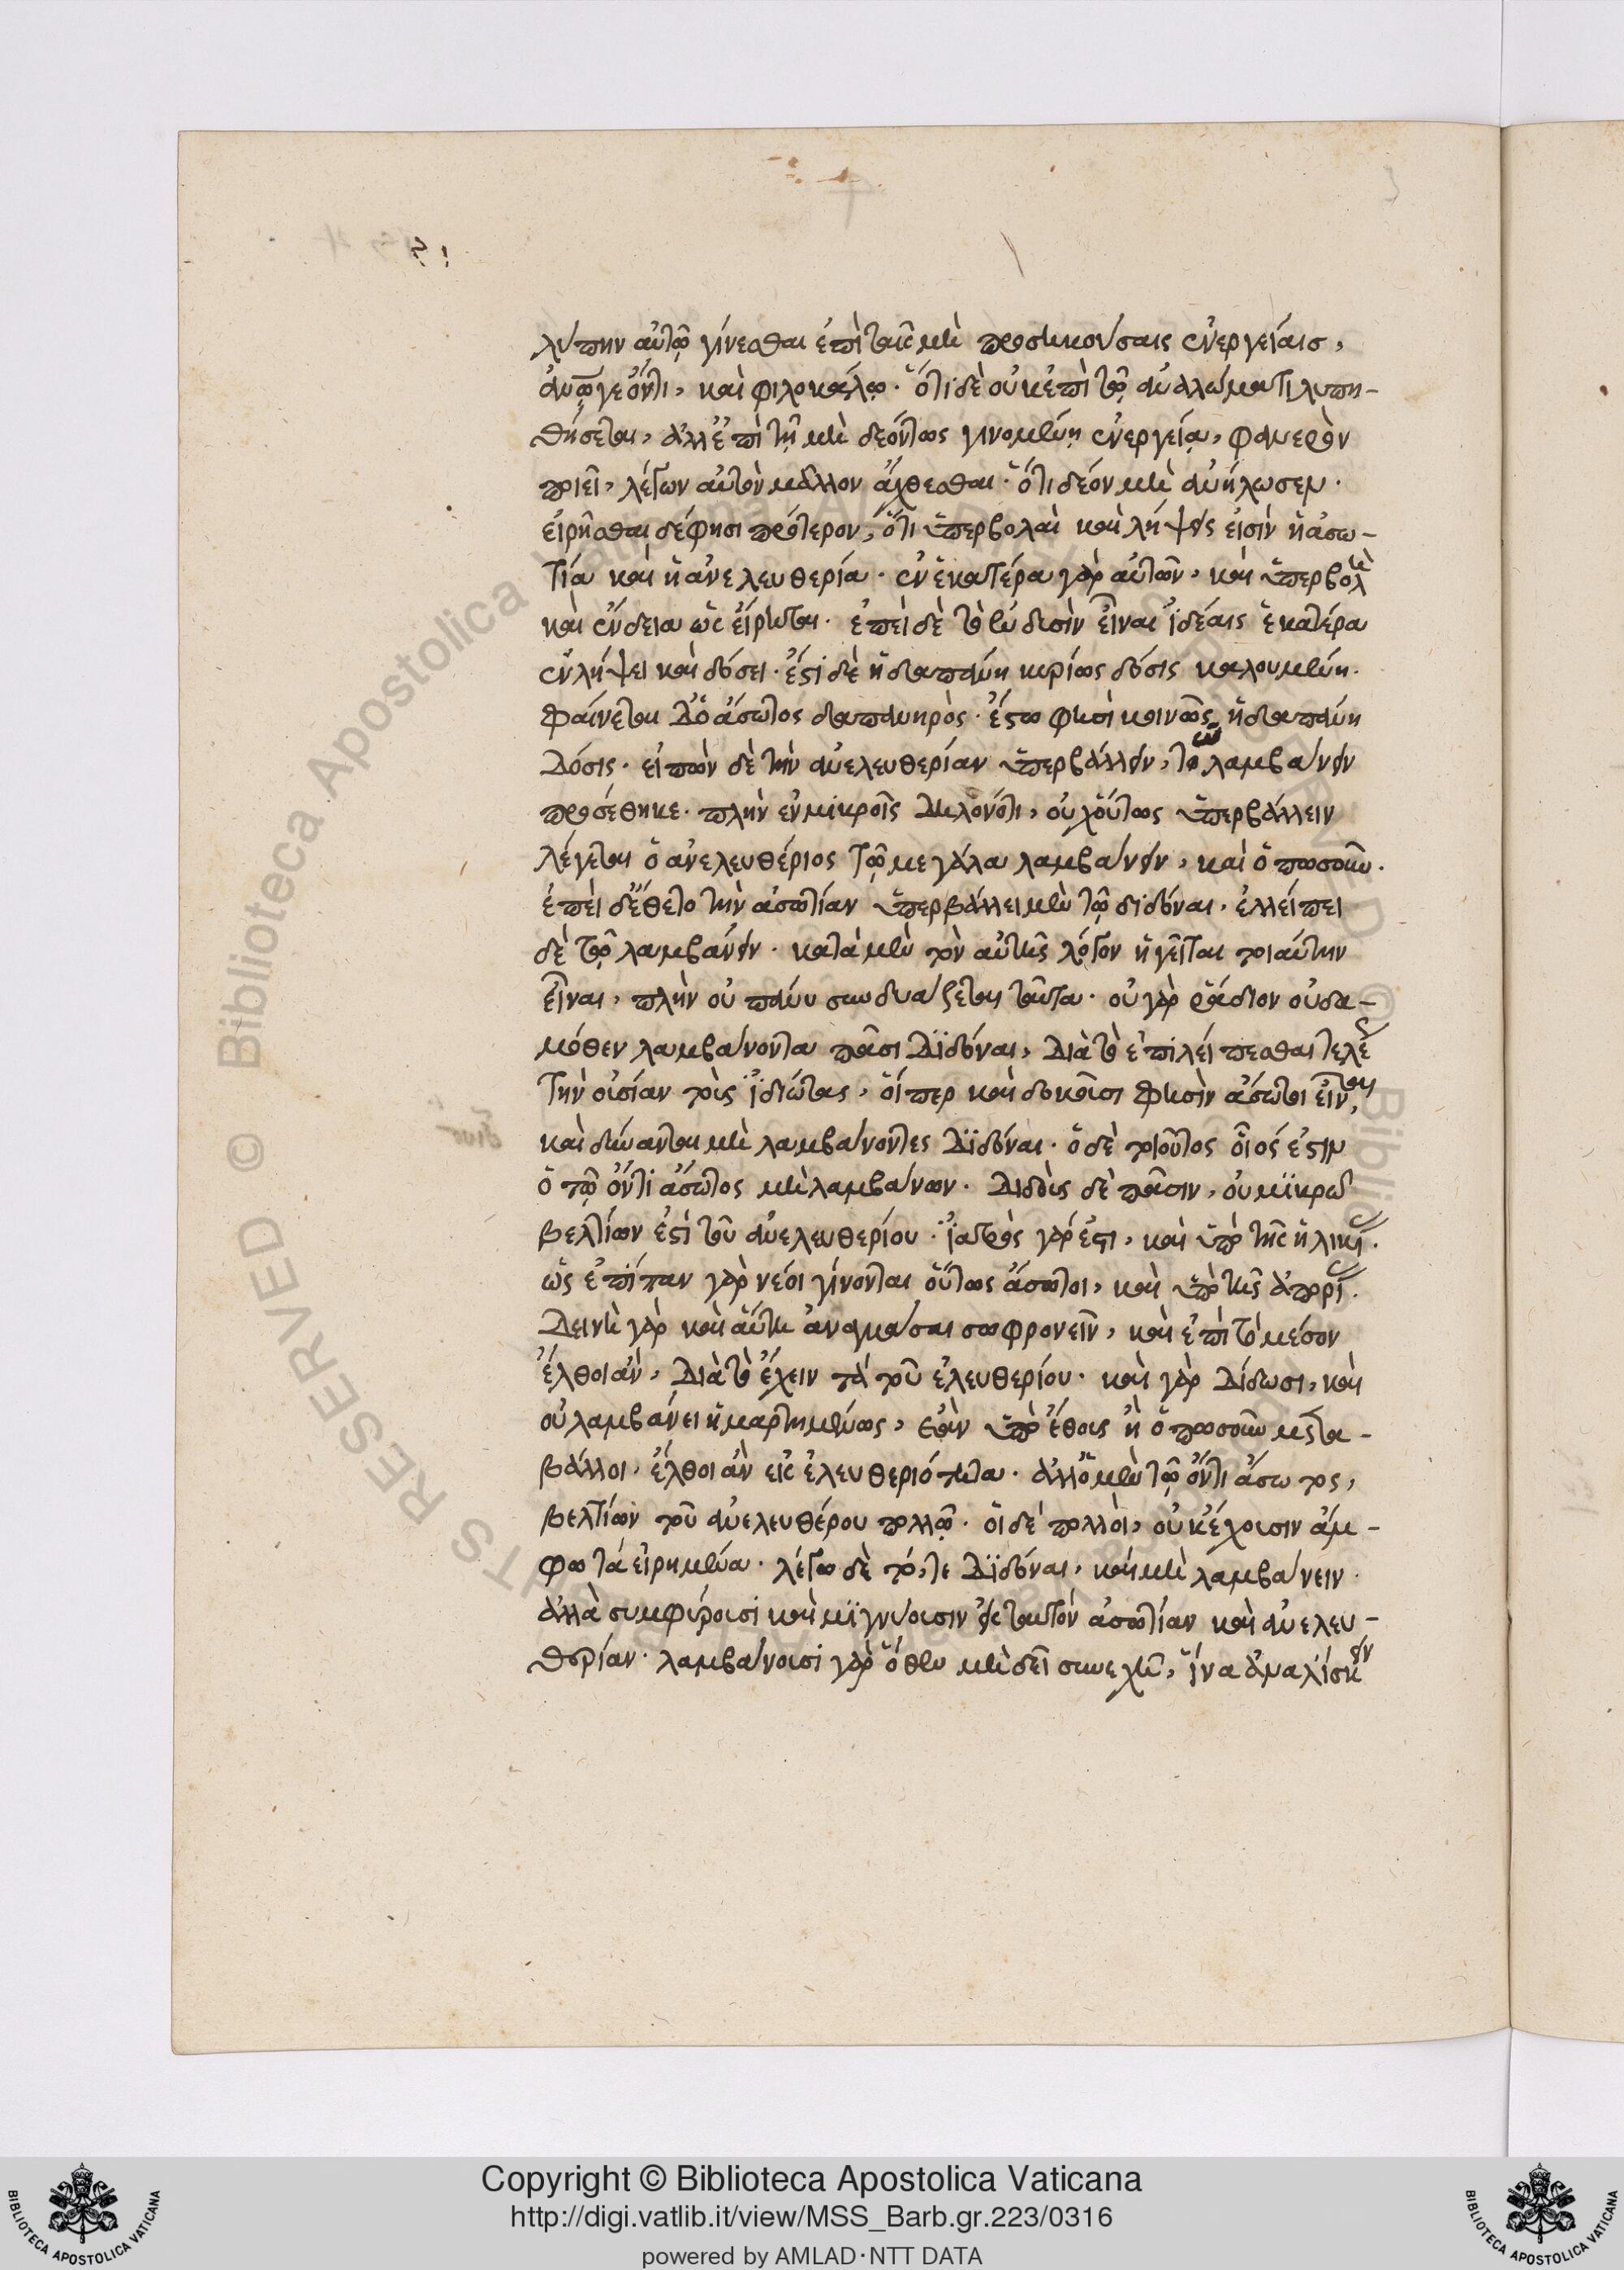 λύπην αὐτῷ γίνεσθαι ἐπὶ ταῖς μὴ προσηκούσαις ἐνεργείαις,
καὶ φιλοκάλῳ. ὅτι δὲ οὐκ ἐπὶ τῷ ἀναλώματι λυπη-
θήσεται, ἀλλ' ἐπὶ τῇ μὴ δεόντως γινομένῃ ἐνεργείᾳ, φανερὸν
ποιεῖ, λέγων αὐτὸν μᾶλλον ἄχθεσθαι. ὅτι δέον μὴ ἀνήλωσεν.
εἰρῆσθαι δέ φησι πρότερον, ὅτι ὑπερβολαὶ καὶ λήψεις εἰσὶν ἡ ἀσω-
τία καὶ ἡ ἀνελευθερία. ἐν ἑκατέρα γὰρ αὐτῶν, καὶ ὑπερβολὴ
καὶ ἔνδεια ὡς εἴρηται. ἐπεὶ δὲ τὸ ἐν δυσὶν εἶναι ἰδέαις ἑκατέρα
ἐν λήψει καὶ δόσει. ἐστὶ δὲ ἡ δαπάνη κυρίως δόσις καλουμένη.
φαίνεται δ' ὁ ἄσωτος δαπανηρὸς. ἔστω φησὶ κοινῶς ἡ δαπάνη
δόσις. εἰπὼν δὲ τὴν ἀνελευθερίαν ὑπερβάλλειν, τῷ λαμβάνειν
προσέθηκε. πλὴν ἐν μικροῖς δηλονότι, οὐχ οὕτως ὑπερβάλλειν
λέγεται ὁ ἀνελευθέριος τῷ μεγάλα λαμβάνειν, καὶ
ἐπεὶ δ' ἔθετο τὴν ἀσωτίαν ὑπερβάλλει μὲν τῷ διδόναι, ἐλλείπει
δὲ τῷ λαμβάνειν. κατὰ μὲν τὸν αὐτῆς λόγον ἡγεῖται τοιαύτην
εἶναι, πλὴν οὐ πάνυ συνδυάζεται ταῦτα. οὐ γὰρ ῥάδιον οὐδα-
μόθεν λαμβάνοντα πᾶσι διδόναι, διὰ τὸ ἐπιλείπεσθαι
τὴν οὐσίαν τοὺς ἰδιώτας, οἵπερ καὶ δοκοῦσι φησὶν ἄσωτοι εἶναι,
καὶ δύνανται μὴ λαμβάνοντες διδόναι. ὁ δὲ τοιοῦτος οἷός ἐστιν
ὁ τῷ ὄντι ἄσωτος μὴ λαμβάνων. διδοὺς δὲ πᾶσιν, οὐ μικρῷ
βελτίων ἐστὶ τοῦ ἀνελευθερίου. ἰατὸς γάρ ἐστι, καὶ ὑπὸ τῆς ἡλικίας.
ὡς ἐπίπαν γὰρ νέοι γίνονται οὕτως ἄσωτοι, καὶ ὑπὸ τῆς ἀπορίας.
δεινὴ γὰρ καὶ αὕτη ἀναγκάσαι σωφρονεῖν, καὶ ἐπὶ τὸ μέσον
ἔλθοι ἂν, διὰ τὸ ἔχειν τὰ τοῦ ἐλευθερίου. καὶ γὰρ δίδωσι, καὶ
οὐ λαμβάνει ἡμαρτημένως, ἐὰν ὑπὸ ἔθους ἢ μετα-
βάλλοι, ἔλθοι ἂν εἰς ἐλευθεριότητα. ἀλλ' ὁ μὲν τῷ ὄντι ἄσωτος,
βελτίων τοῦ ἀνελευθέρου πολλῷ. οἱ δὲ πολλοὶ, οὐκ ἔχουσιν ἄμ-
φω τὰ εἰρημένα. λέγω δὲ τό, τε διδόναι, καὶ μὴ λαμβάνειν.
ἀλλὰ συμφύρουσι καὶ μιγνύουσιν εἰς ταυτὸν ἀσωτίαν καὶ ἀνελευ-
θερίαν. λαμβάνουσι γὰρ ὅθεν μὴ δεῖ συνεχῶς, ἵνα ἀναλίσκειν
Copyright © Biblioteca Apostolica Vaticana
http://digi.vatlib.it/view/MSS_Barb.gr.223/0316
powered by AMLAD·NTT DATA
BIBLIOTECA APOSTOLICA VATICANA
BIBLIOTECA APOSTOLICA VATICANA